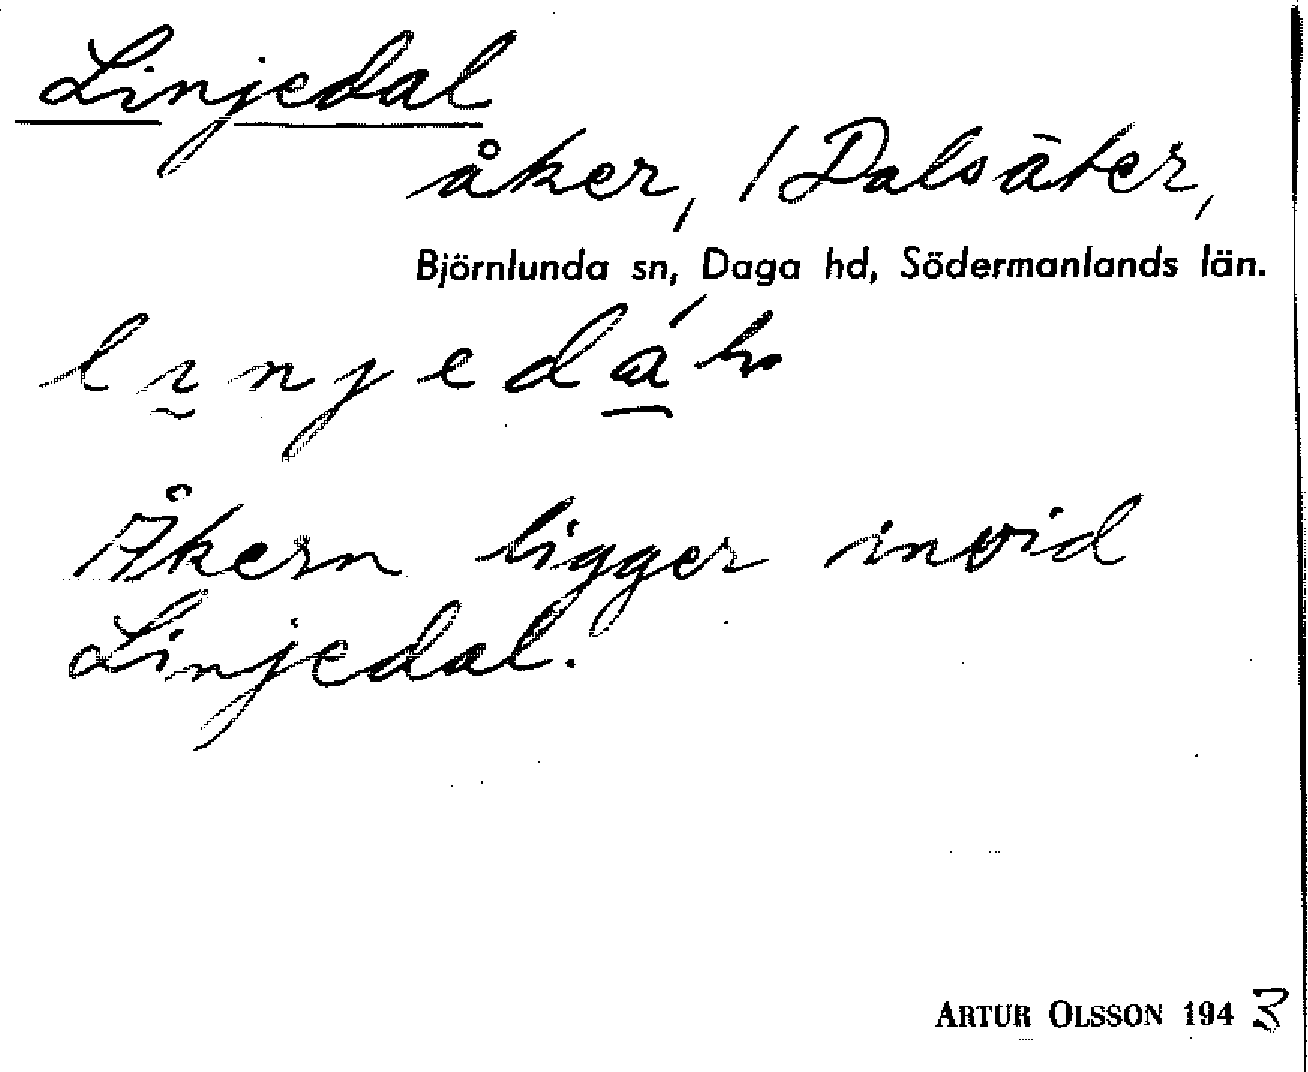 Linjedal
åker, / Dalsäter,
Björnlunda sn, Daga hd, Södermanlands län.
Åkern ligger invid
Linjedal.
ARTUR OLSSON 1943